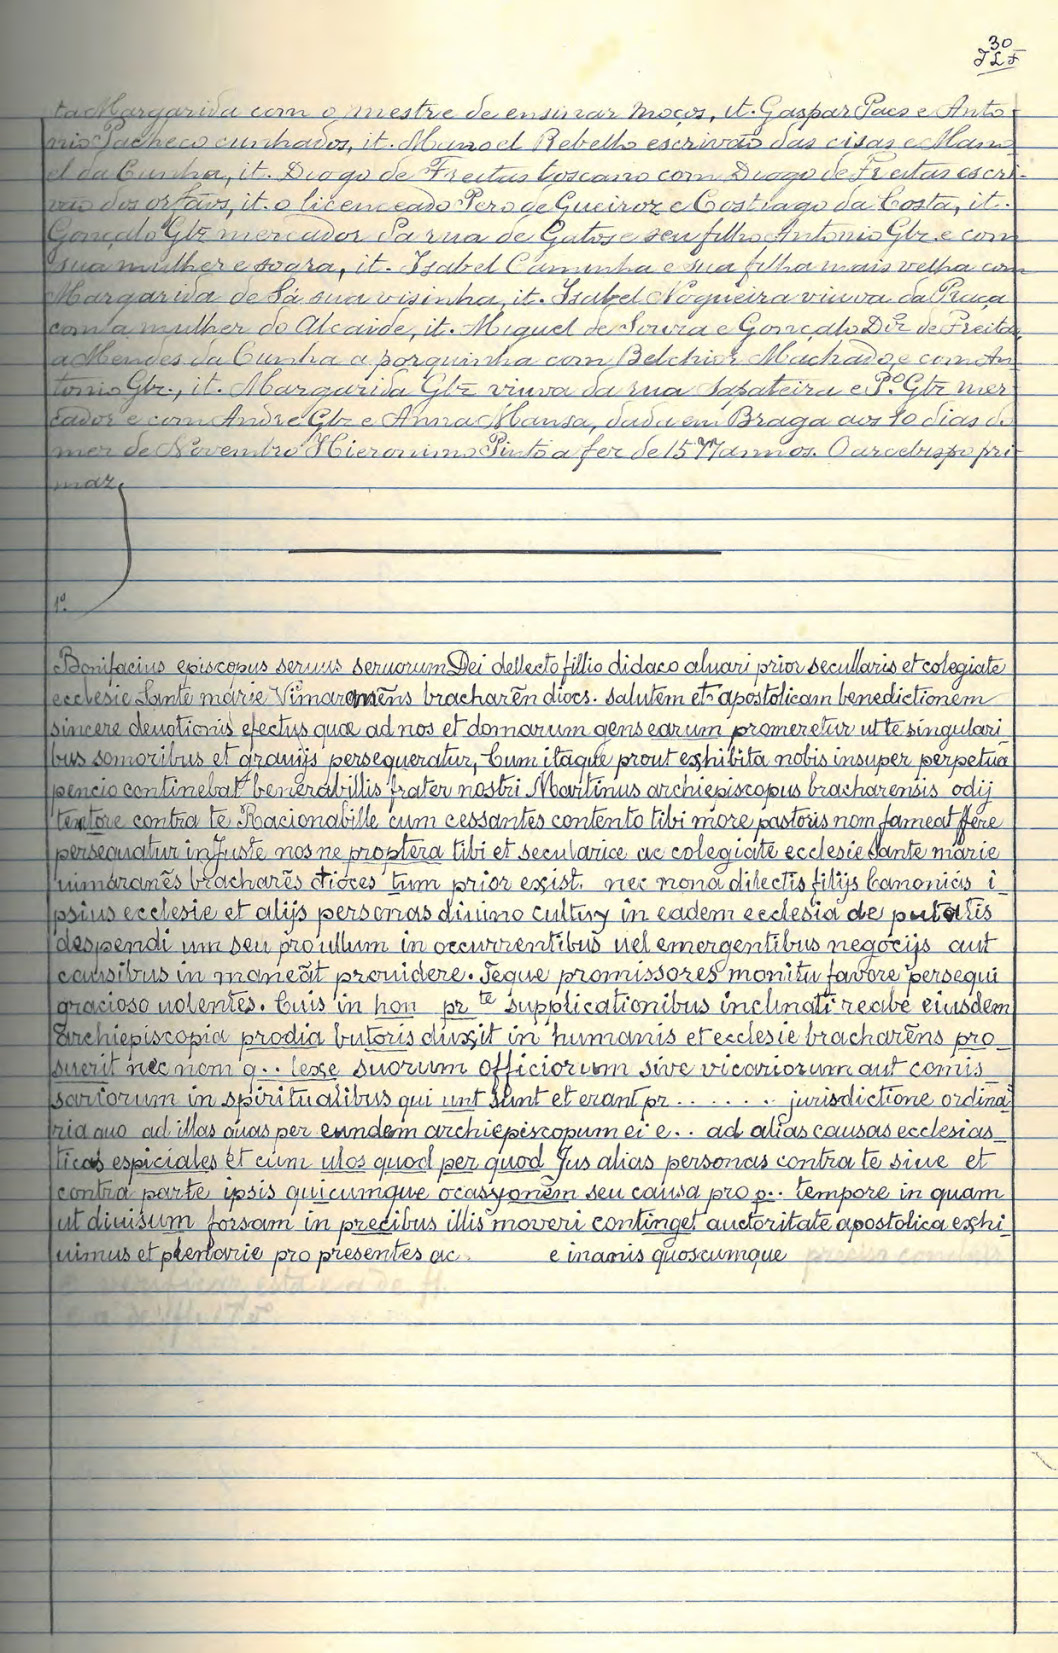 30
JLF
ta Margarida com o mestre de ensinar moços, it. Gaspar Paes e Anto-
nio Pacheco cunhados, it. Manoel Rebello escrivão das cisas e Mano
el da Cunha, it. Diogo de Freitas toscano com Diogo de Freitas escri-
vão dos orfãos, it. o licenceado Pero de Gueiroz e Costiago da Costa, it.
Gonçalo Glz mercador da rua de Gatos e seu filho Antonio Glz. e com
sua mulher e sogra, it. Isabel Caminha e sua filha mais velha com
Margarida de Sá sua visinha, it. Isabel Nogueira viuva da Praça
com a mulher do Alcaide, it. Miguel de Souza e Gonçalo Diz de Freita,
a Mendes da Cunha a porquinha com Belchior Machado, e com An
tonio Glz., it. Margarida Glz viuva da rua Sapateira e P.º Glz mer
cador e com Andre Glz e Anna Mansa, dada em Braga aos 10 dias do
mez de Novembro Hieronimo Pinto a fez de 1577 annos. O arcebispo pri-
maz,
1º.
Bonifacius episcopus servus servorum Dei dellecto fillio didaco aluari prior secullaris et colegiate
ecclesie Sante marie Vimaranēns bracharēn diocs. salutem et apostolicam benedictionem
sincere deuotionis efectus quæ ad nos et domarum gens earum promeretur ut te singulari
bus somoribus et granijs persequeratur, Cum itaque prout exhibita nobis insuper perpetua
pencio continebat benerabillis frater nostri Martinus archiepiscopus bracharensis odij
tentore contra te Racionabille cum cessantes contento tibi more pastoris nom fameat ffere
persequatur in Juste nos ne proptera tibi et secularice ac colegiate ecclesie Sante marie
uimaranēs bracharēs dioces tum prior exist. nec nona dilectis filijs Canonicis i
psius ecclesie et alijs personas diuino cultuy in eadem ecclesia de putatis
despendi um seu pro ullum in occurrentibus uel emergentibus negocijs aut
causibus in maneāt prouidere. Teque promissores monitu favore persequi
gracioso uolentes. Cuis in hon pr te supplicationibus inclinati recibe eiusdem
archiepiscopia prodia butoris duxit in humanis et ecclesie bracharēns pro
suerit nec nom q.. lexe suorum officiorum sive vicariorum aut comis
sariorum in spiritualibus qui unt sunt et erant pr . . . . . . . jurisdictione ordina
ria quo ad illas quas per eundem archiepiscopum ei e.. ad alias causas ecclesias
ticas espiciales et cum ulos quod per quod Jus alias personas contra te siue et
contra parte ipsis quicumque ocasyonem seu causa pro p.. tempore in quam
ut diuisum forsam in precibus illis moveri continget auctoritate apostolica exhi
uimus et plenarie pro presentes ac e inanis quoscumque